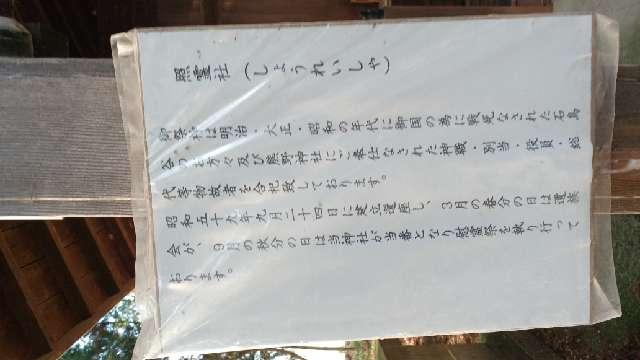 照霊社(しょうれいしゃ)
御祭神は明治・大正・昭和の年代に御国の為に戦死なされた石鳥
谷の方々及び熊野神社にご奉仕なされた神職・別当・役員・総
代等物故者を合祀致しております。
昭和五十九年九月二十四日に建立遷座し、3月の春分の日は遺族
会が、9月の秋分の日は当神社が当番となり慰霊祭を執り行って
おります。